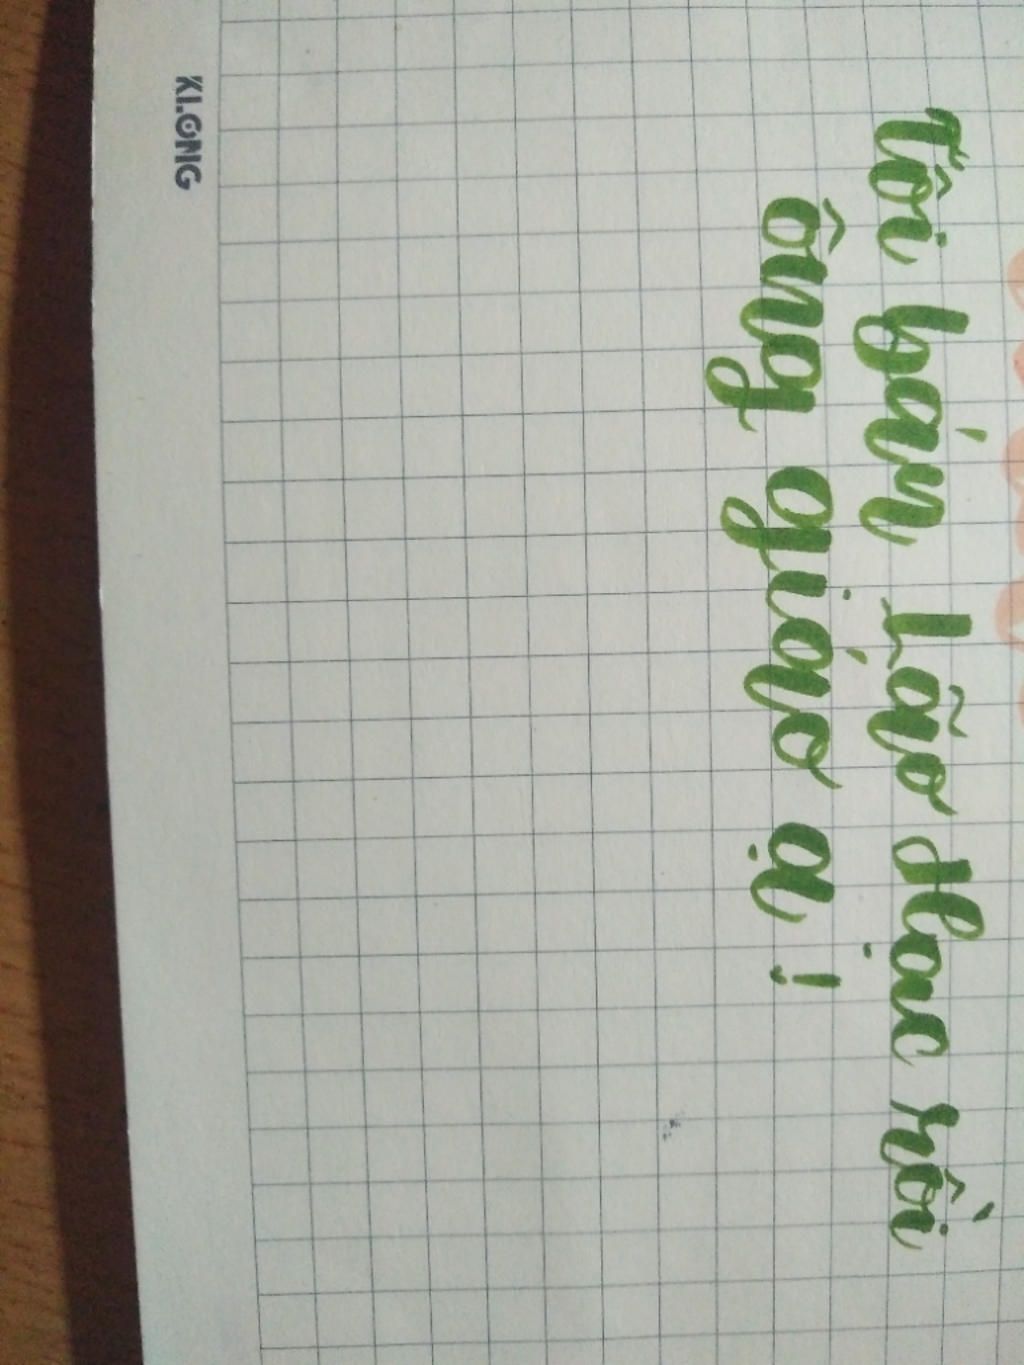 Tôi bán Lão Hạc rồi
ông giáo ạ!
KLONG